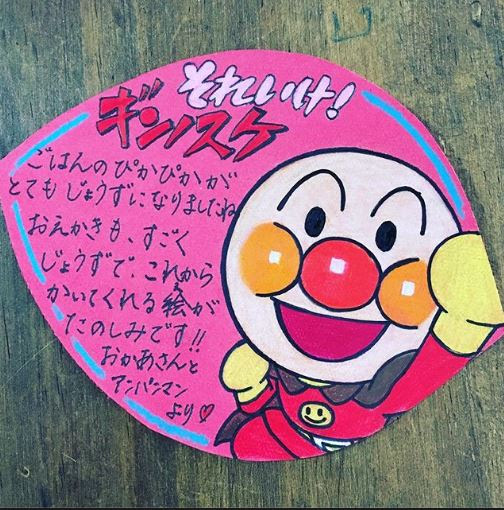 それいけ!
ギンノスケ
ごはんのぴかぴかが
とてもじょうずになりましたね
おえかきも、すごく
じょうずで、これから
かいてくれる絵が
たのしみです!!
おかあさんと
アンパンマン
より♡